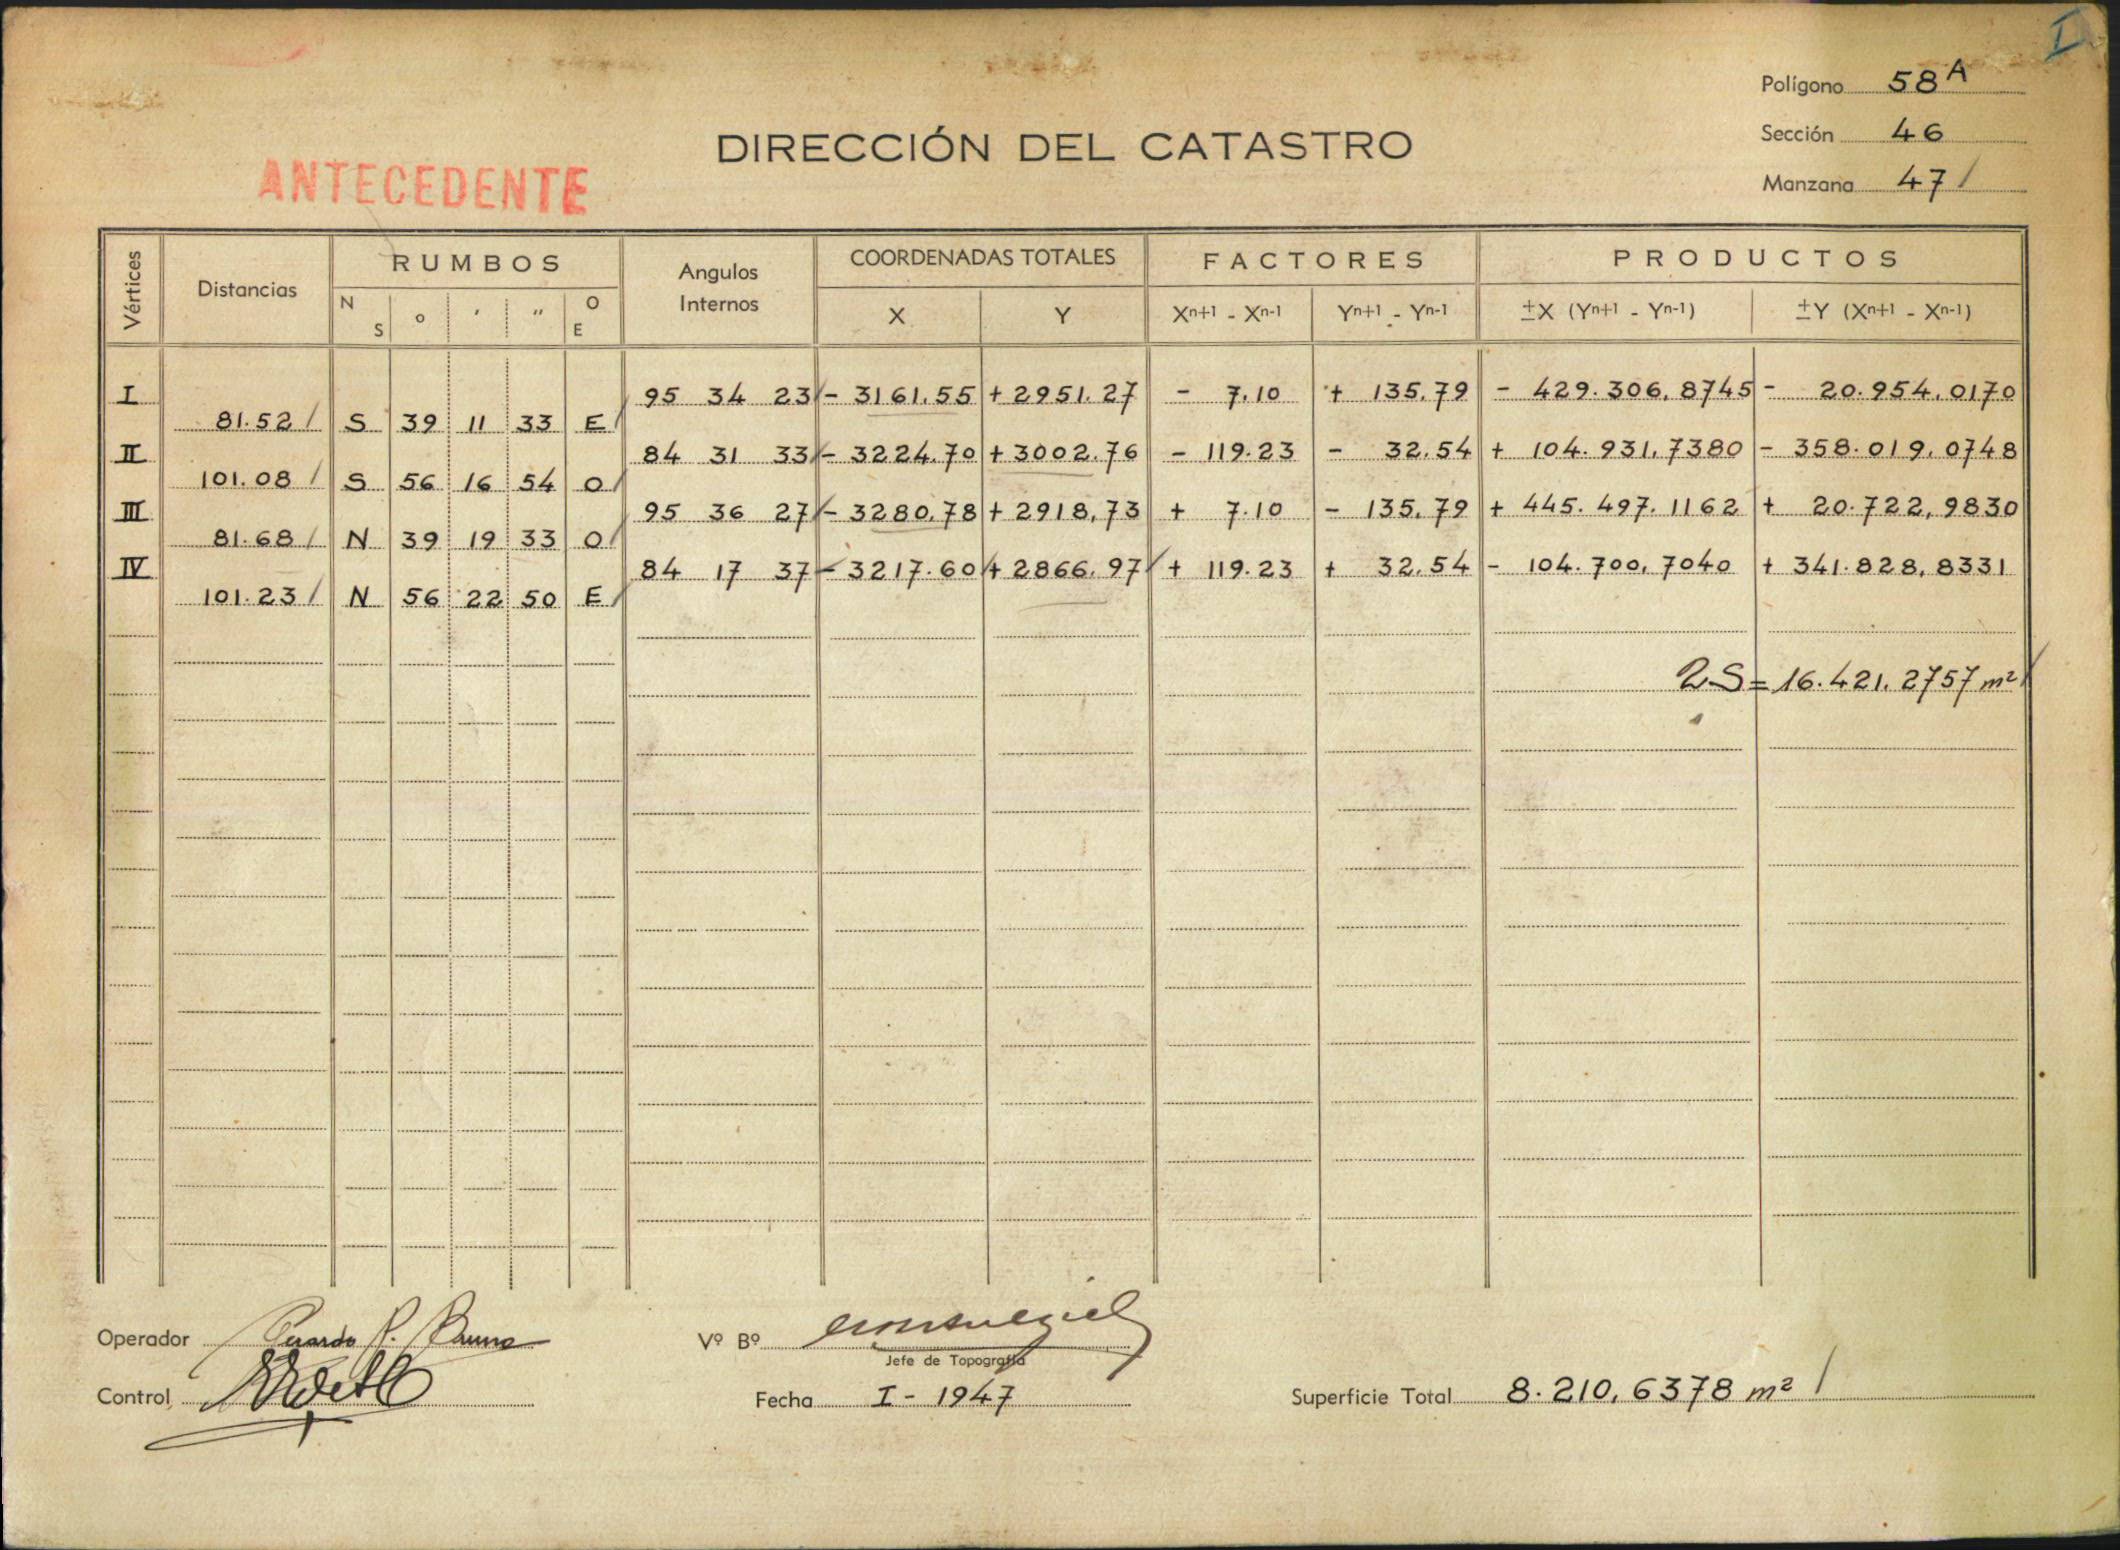 I
Polígono 58 A
Sección 46
Manzana 47 /
DIRECCIÓN DEL CATASTRO
ANTECEDENTE
Vértices Distancias RUMBOS Angulos Internos COORDENADAS TOTALES FACTORES PRODUCTOS
N S o ′ ″ O E X Y Xn+1 - Xn-1 Yn+1 - Yn-1 ±X (Yn+1 - Yn-1) ±Y (Xn+1 - Xn-1)
I 95 34 23 / - 3161.55 + 2951.27 - 7.10 + 135.79 - 429.306,8745 - 20.954,0170
81.52 / S 39 11 33 E /
II 84 31 33 / - 3224.70 + 3002.76 - 119.23 - 32.54 + 104.931,7380 - 358.019,0748
101.08 / S 56 16 54 O /
III 95 36 27 / - 3280,78 + 2918,73 + 7.10 - 135.79 + 445.497.1162 + 20.722,9830
81.68 / N 39 19 33 O /
IV 84 17 37 - 3217.60 + 2866.97 / + 119.23 + 32.54 - 104.700,7040 + 341.828,8331
101.23 / N 56 22 50 E /
2S = 16.421.2757 m² /
Operador Gerardo P. Bruno
Control
Vº Bº
Jefe de Topografía
Fecha I - 1947
Superficie Total 8.210,6378 m² /